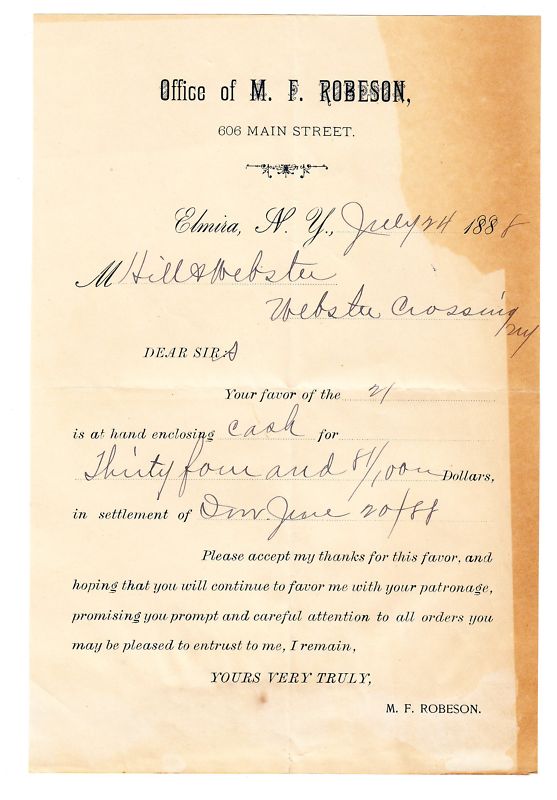 Office of M. F. ROBESON,
606 MAIN STREET.
Elmira, N. Y., July 24 1888
M Hill & Webster
Webster Crossing
NY
DEAR SIRS
Your favor of the 21
is at hand enclosing cash for
Thirty four and 81/100 Dollars,
in settlement of Inv. June 20/88
Please accept my thanks for this favor, and
hoping that you will continue to favor me with your patronage,
promising you prompt and careful attention to all orders you
may be pleased to entrust to me, I remain,
YOURS VERY TRULY,
M. F. ROBESON.